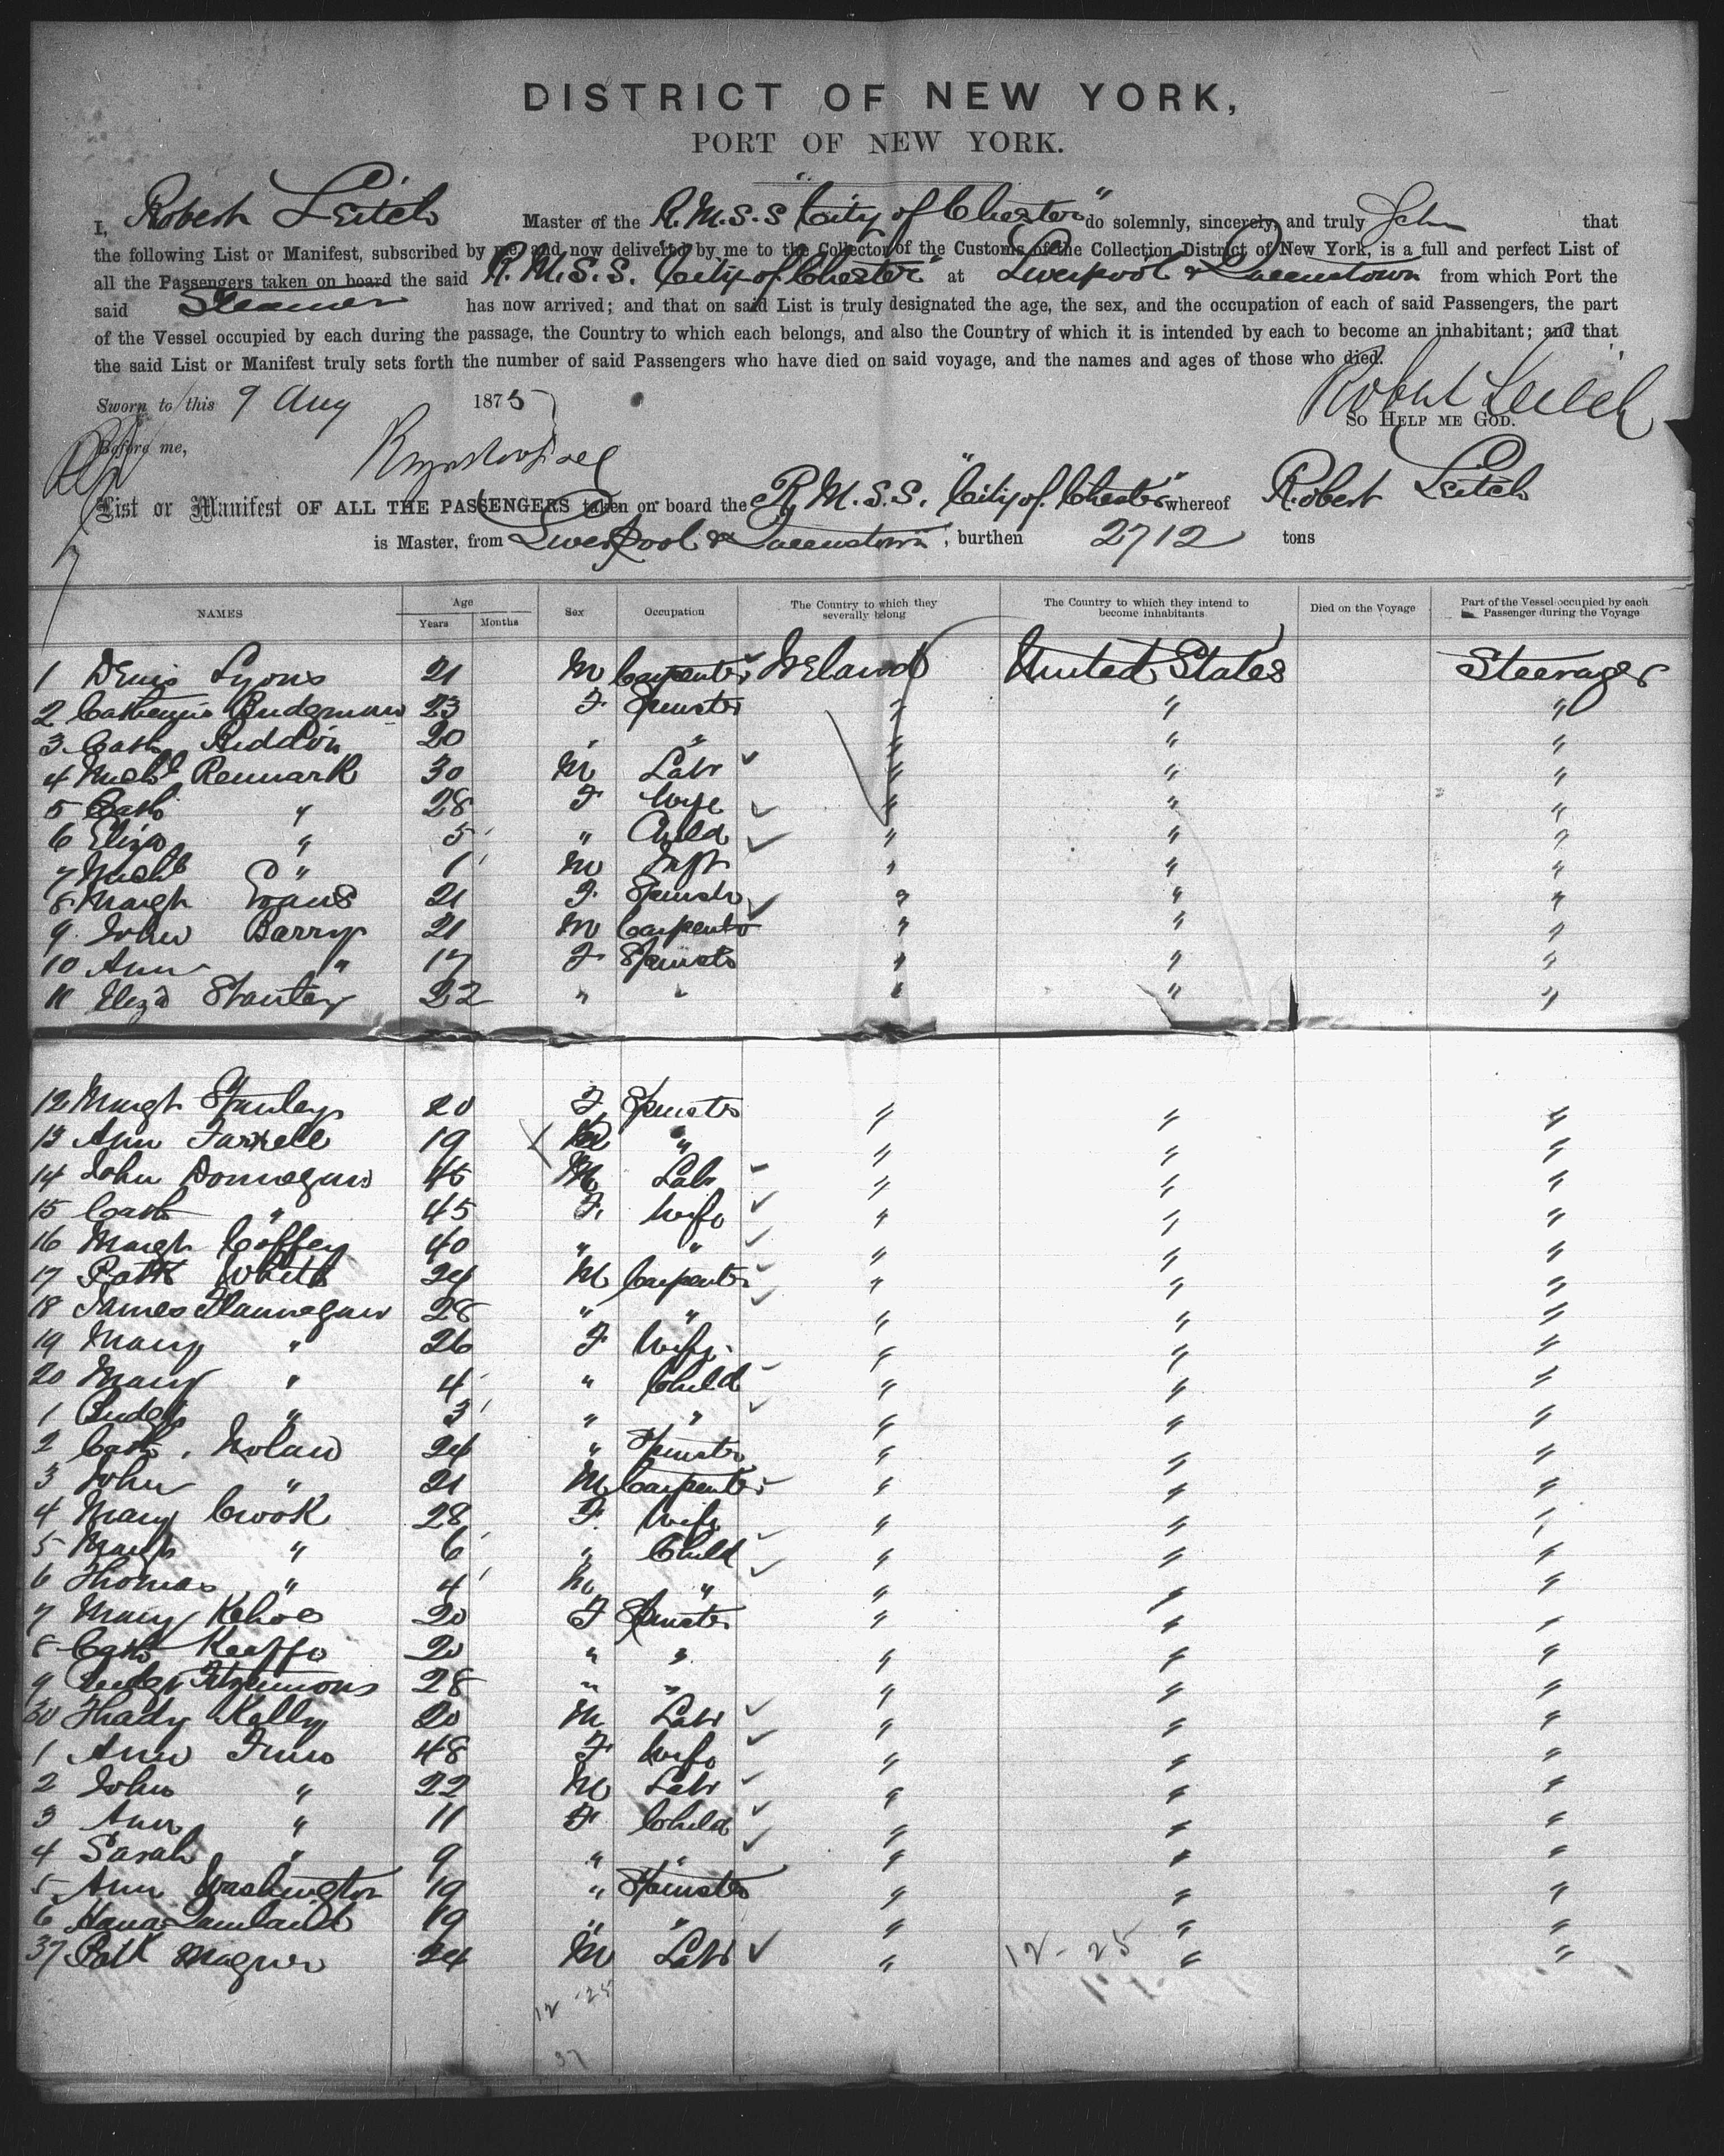 DISTRICT OF NEW YORK,
PORT OF NEW YORK.
I, Robert Leitch Master of the R.M.S.S "City of Chester" do solemnly, sincerely, and truly that
the following List or Manifest, subscribed by me, and now delivered by me to the Collector of the Customs of the Collection District of New York, is a full and perfect List of
all the Passengers taken on board the said R.M.S.S. "City of Chester" at Liverpool & Queenstown from which Port the
said Steamer has now arrived; and that on said List is truly designated the age, the sex, and the occupation of each of said Passengers, the part
of the Vessel occupied by each during the passage, the Country to which each belongs, and also the Country of which it is intended by each to become an inhabitant; and that
the said List or Manifest truly sets forth the number of said Passengers who have died on said voyage, and the names and ages of those who died.
Robert Leitch
Sworn to this 9 Aug 1875
SO HELP ME GOD.
Before me,
List or Manifest OF ALL THE PASSENGERS taken on board the R.M.S.S. "City of Chester" whereof Robert Leitch
is Master, from Liverpool & Queenstown, burthen 2712 tons
NAMES Age Years Months Sex Occupation The Country to which they severally belong The Country to which they intend to become inhabitants Died on the Voyage Part of the Vessel occupied by each Passenger during the Voyage
1 Denis Lyons 21 M Carpenter Ireland United States Steerage
2 Catherine Bridgman 23 F Spinster " " "
3 Cath 20 " " " " "
4 Michl Renwark 30 M Labr " " "
5 Cath " 28 F Wife " " "
6 Eliza " 5 " Child " " "
7 Michl " 1 M Inft " " "
8 Margt Evans 21 F Spinstr " " "
9 John Barry 21 M Carpenter " " "
10 Ann " 17 F Spinstr " " "
11 Eliza Stanley 22 " " " " "
12 Margt Stanley 20 F Spinster " " "
13 Ann Farrell 19 " " " "
14 John Donnegan 45 M Labr " " "
15 Cath " 45 F. Wife " " "
16 Margt Coffey 40 " " " " "
17 Patk White 24 M Carpenter " " "
18 James Flannegan 28 " " " " "
19 Mary " 26 F Wife " " "
20 Mary " 4 " Child " " "
1 Bridgt " 3 " " " " "
2 Cath. Nolan 24 " Spinster " " "
3 John " 21 M Carpenter " " "
4 Mary Crook 28 F. Wife " " "
5 Margt " 6 " Child " " "
6 Thomas " 4 M " " " "
7 Mary Kehoe 20 F Spinster " " "
8 Cath Keeffe 20 " " " " "
9 Bridgt Fitzsimons 28 " " " " "
30 Thady Kelly 20 M Labr " " "
1 Ann Finn 48 F Wife " " "
2 John " 22 M Labr " " "
3 Ann " 11 F Child " " "
4 Sarah " 9 " " " " "
5 Ann Washington 19 " Spinster " " "
6 Hana 19 " " " " "
37 Patk Magner 24 M Labr " 12-25 " "
12-25
37